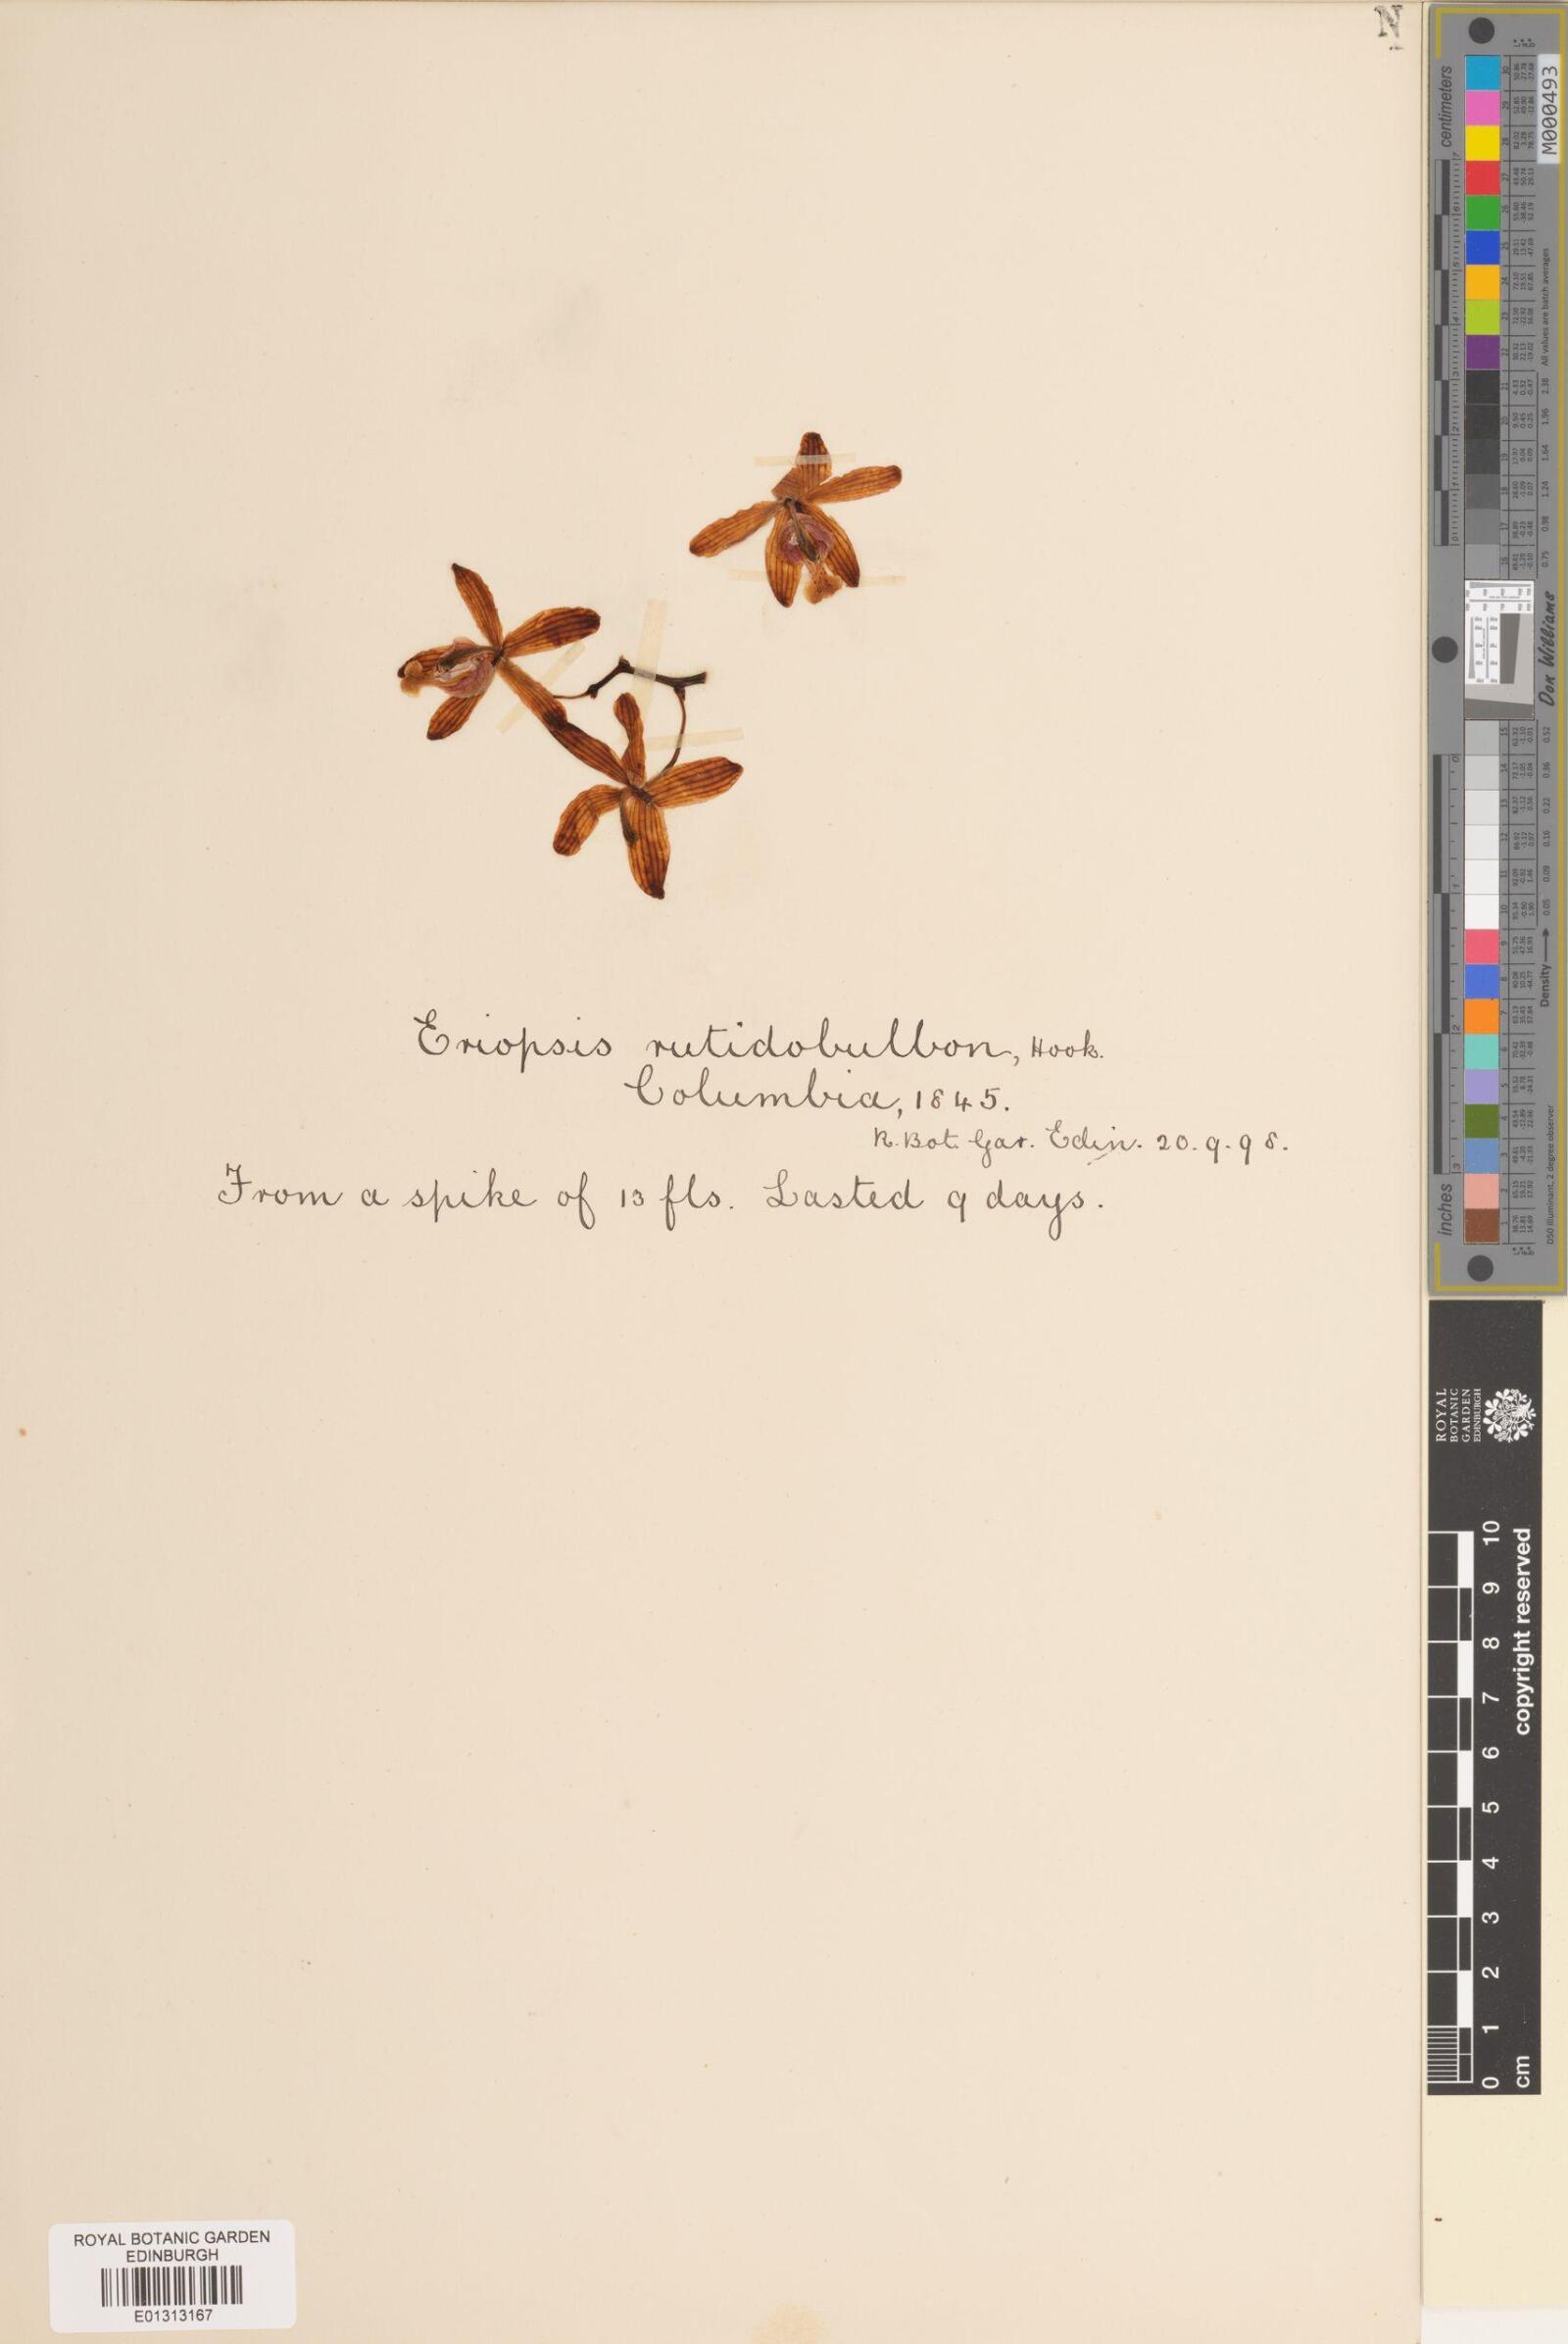 N
Eriopsis rutidobulbon, Hook.
Columbia, 1845.
R. Bot. Gar. Edin. 20.9.98.
From a spike of 13 fls. Lasted 9 days.
ROYAL BOTANIC GARDEN
EDINBURGH
E01313167
centimeters
M000493
All values are batch averages
Don Williams
Density
inches
D50 Illuminant, 2 degree observer
ROYAL
BOTANIC
GARDEN
EDINBURGH
copyright reserved
10
9
8
7
6
5
4
3
2
1
0
cm